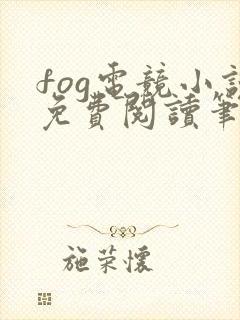 fog電競小說
免費閱讀筆
施荣懷